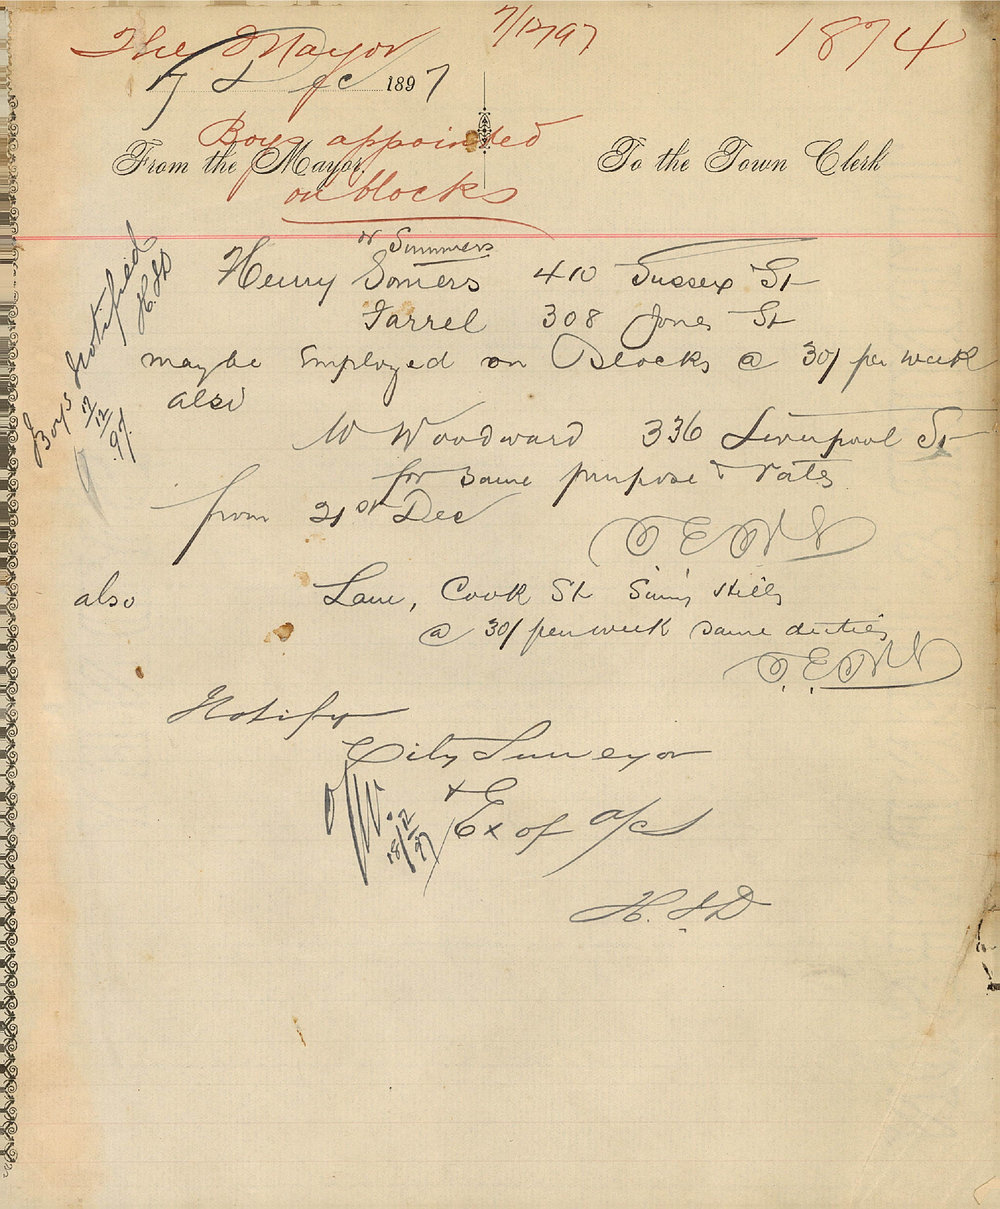 The Mayor 7/12/97 1874
7 Dec 1897
Boys appointed
From the Mayor, To the Town Clerk
on blocks
or Summers
Henry Somers 410 Sussex St
Farrel 308 Jones St
maybe Employed on Blocks @ 30/ per week
also
W Woodward 336 Liverpool St
for same purpose & rates
from 21st Dec
also Lane, Cook St Surry Hills
@ 30/ per week same duties
Notify
City Surveyor
+ Ex of a/cs
18/12/97
H.J.D
Boys Notified
H.J.D
17/12/97.